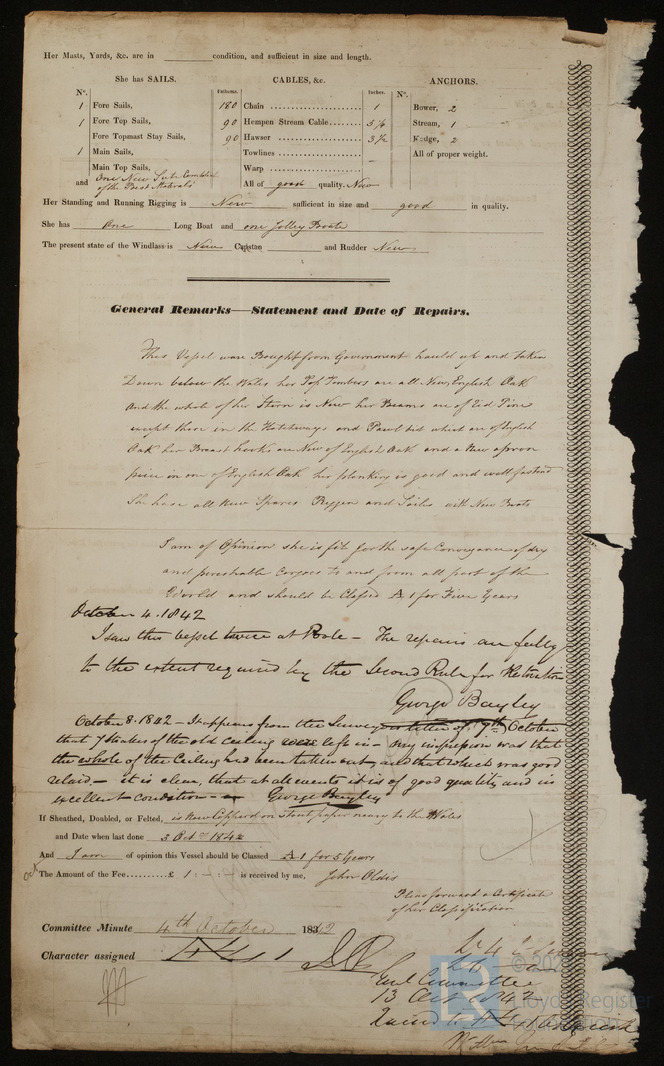 Her Masts, Yards, &c. are in condition, and sufficient in size and length.
She has SAILS. CABLES, &c. ANCHORS.
No. Fathoms. Inches. No.
1 Fore Sails, 180 Chain 1 Bower, 2
1 Fore Top Sails, 90 Hempen Stream Cable 5½ Stream, 1
Fore Topmast Stay Sails, 90 Hawser 3½ Kedge, 2
1 Main Sails, Towlines All of proper weight.
Main Top Sails, Warp
and One New Suit Complete of the Best Materials All of good quality. New
Her Standing and Running Rigging is New sufficient in size and good in quality.
She has One Long Boat and one Jolley Boate
The present state of the Windlass is New Capstan and Rudder New
General Remarks—Statement and Date of Repairs.
This Vessel ware Bought from Government hauld up and taken
Down below the Wales her Top Timbers are all New English Oak
And the whole of her Stern is New her Beams are of Red Pine
except those in the Hatchways and Pawl bit which are of English
Oak her Breast hooks are New of English Oak and a New apron
peice in one of English Oak her planking is good and well fastind
She have all New Spares Riggen and Sailes with New Boats
I am of Opinion she is fit for the safe Conveyance of dry
and perishable Cargoes to and from all part of the
World and should be Classed A 1 for Five Years
October 4. 1842
I saw this vessel twice at Poole – The repairs are fully
to the extent required by the Second Rule for Restoration
George Bayley
October 8. 1842 – It appears from the Surveyor's letter of 7th October
that 7 strakes of the old ceiling were left in – my impression was that
the whole of the Ceiling had been taken out, and that which was good
relaid – it is clear, that at all events it is of good quality and in
excellent condition – George Bayley
If Sheathed, Doubled, or Felted, is New Copperd on Stout paper neary to the Wales
and Date when last done 3 Octr 1842
And I am of opinion this Vessel should be Classed A 1 for 5 Years
Oct
The Amount of the Fee £ 1 : – : – is received by me, John Oldis
Pleas forward a Certificate
of her Classification
Committee Minute 4th October 1842
Character assigned 1
Committee
13 Oct 1842
© 20
Lloyd's Register